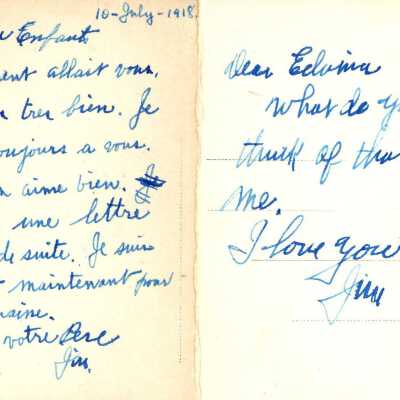 10-July-1918.
Enfant
ent allait vous.
tres bien. Je
toujours a vous.
n aime bien.
une lettre
de suite. Je suis
maintenant pour
aine.
votre Pere
Jim.
Dear Edwina
What do y
think of tha
me.
I love you
Jim